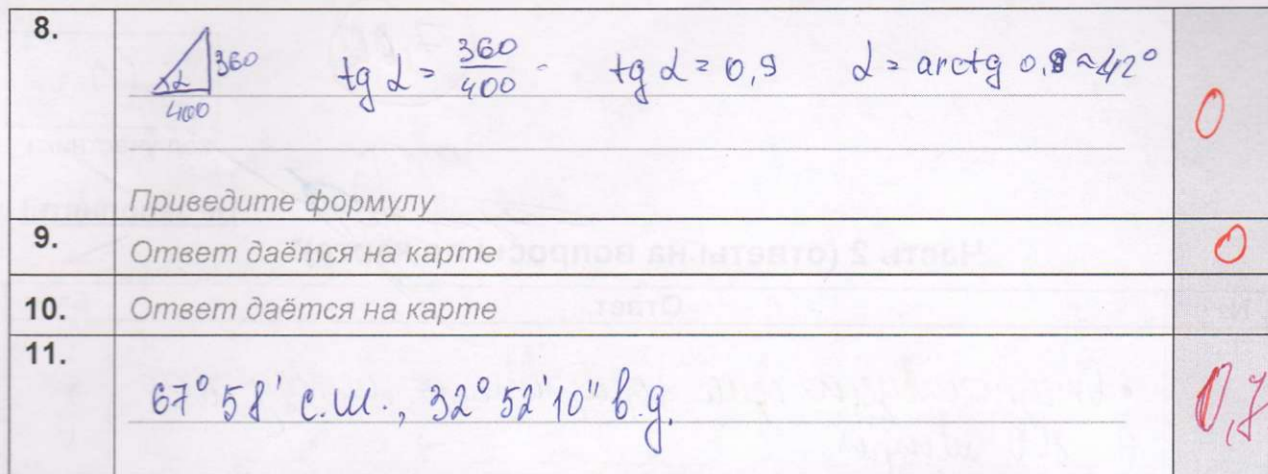 8.
360
400
tg α = 360/400 tg α = 0,9 α = arctg 0,9 ≈ 42°
0
Приведите формулу
9. Ответ даётся на карте 0
10. Ответ даётся на карте
11.
67° 58' с.ш., 32° 52' 10" в.д.